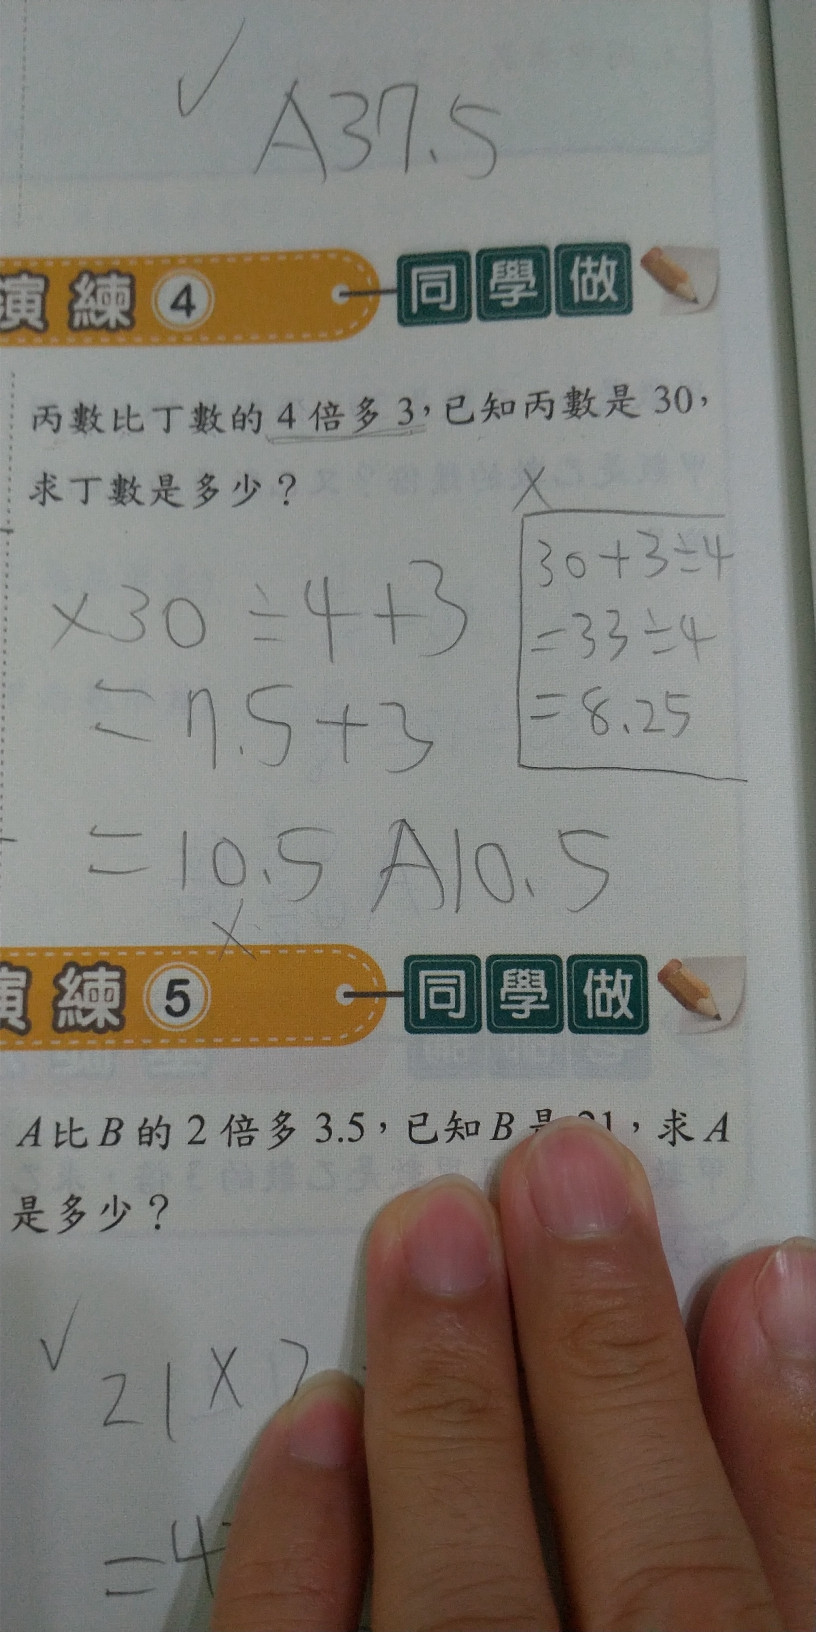 ✓ A37.5
演練 4 同學做
丙數比丁數的4倍多3，已知丙數是30，
求丁數是多少？
×
×30÷4+3
=7.5+3
=10.5 A10.5
×
30+3÷4
=33÷4
=8.25
演練 5 同學做
A比B的2倍多3.5，已知B是21，求A
是多少？
✓ 21×2
=4